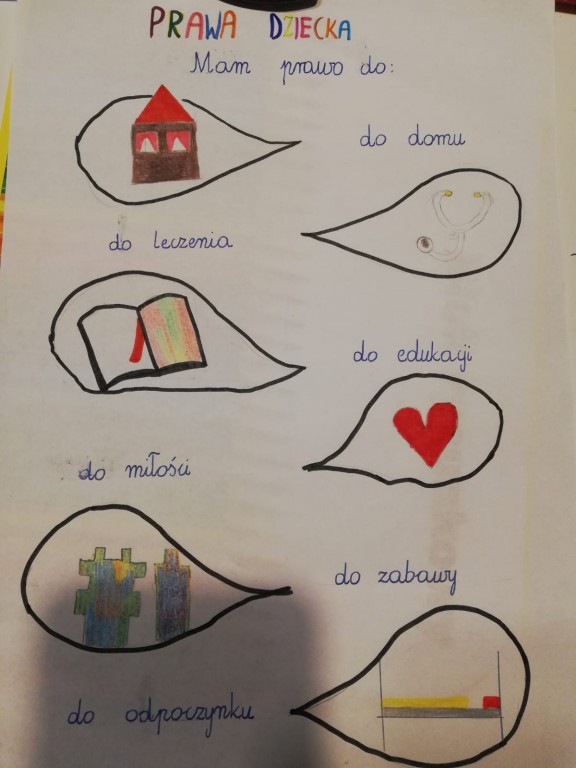 PRAWA DZIECKA
Mam prawo do:
do domu
do leczenia
do edukacji
do miłości
do zabawy
do odpoczynku